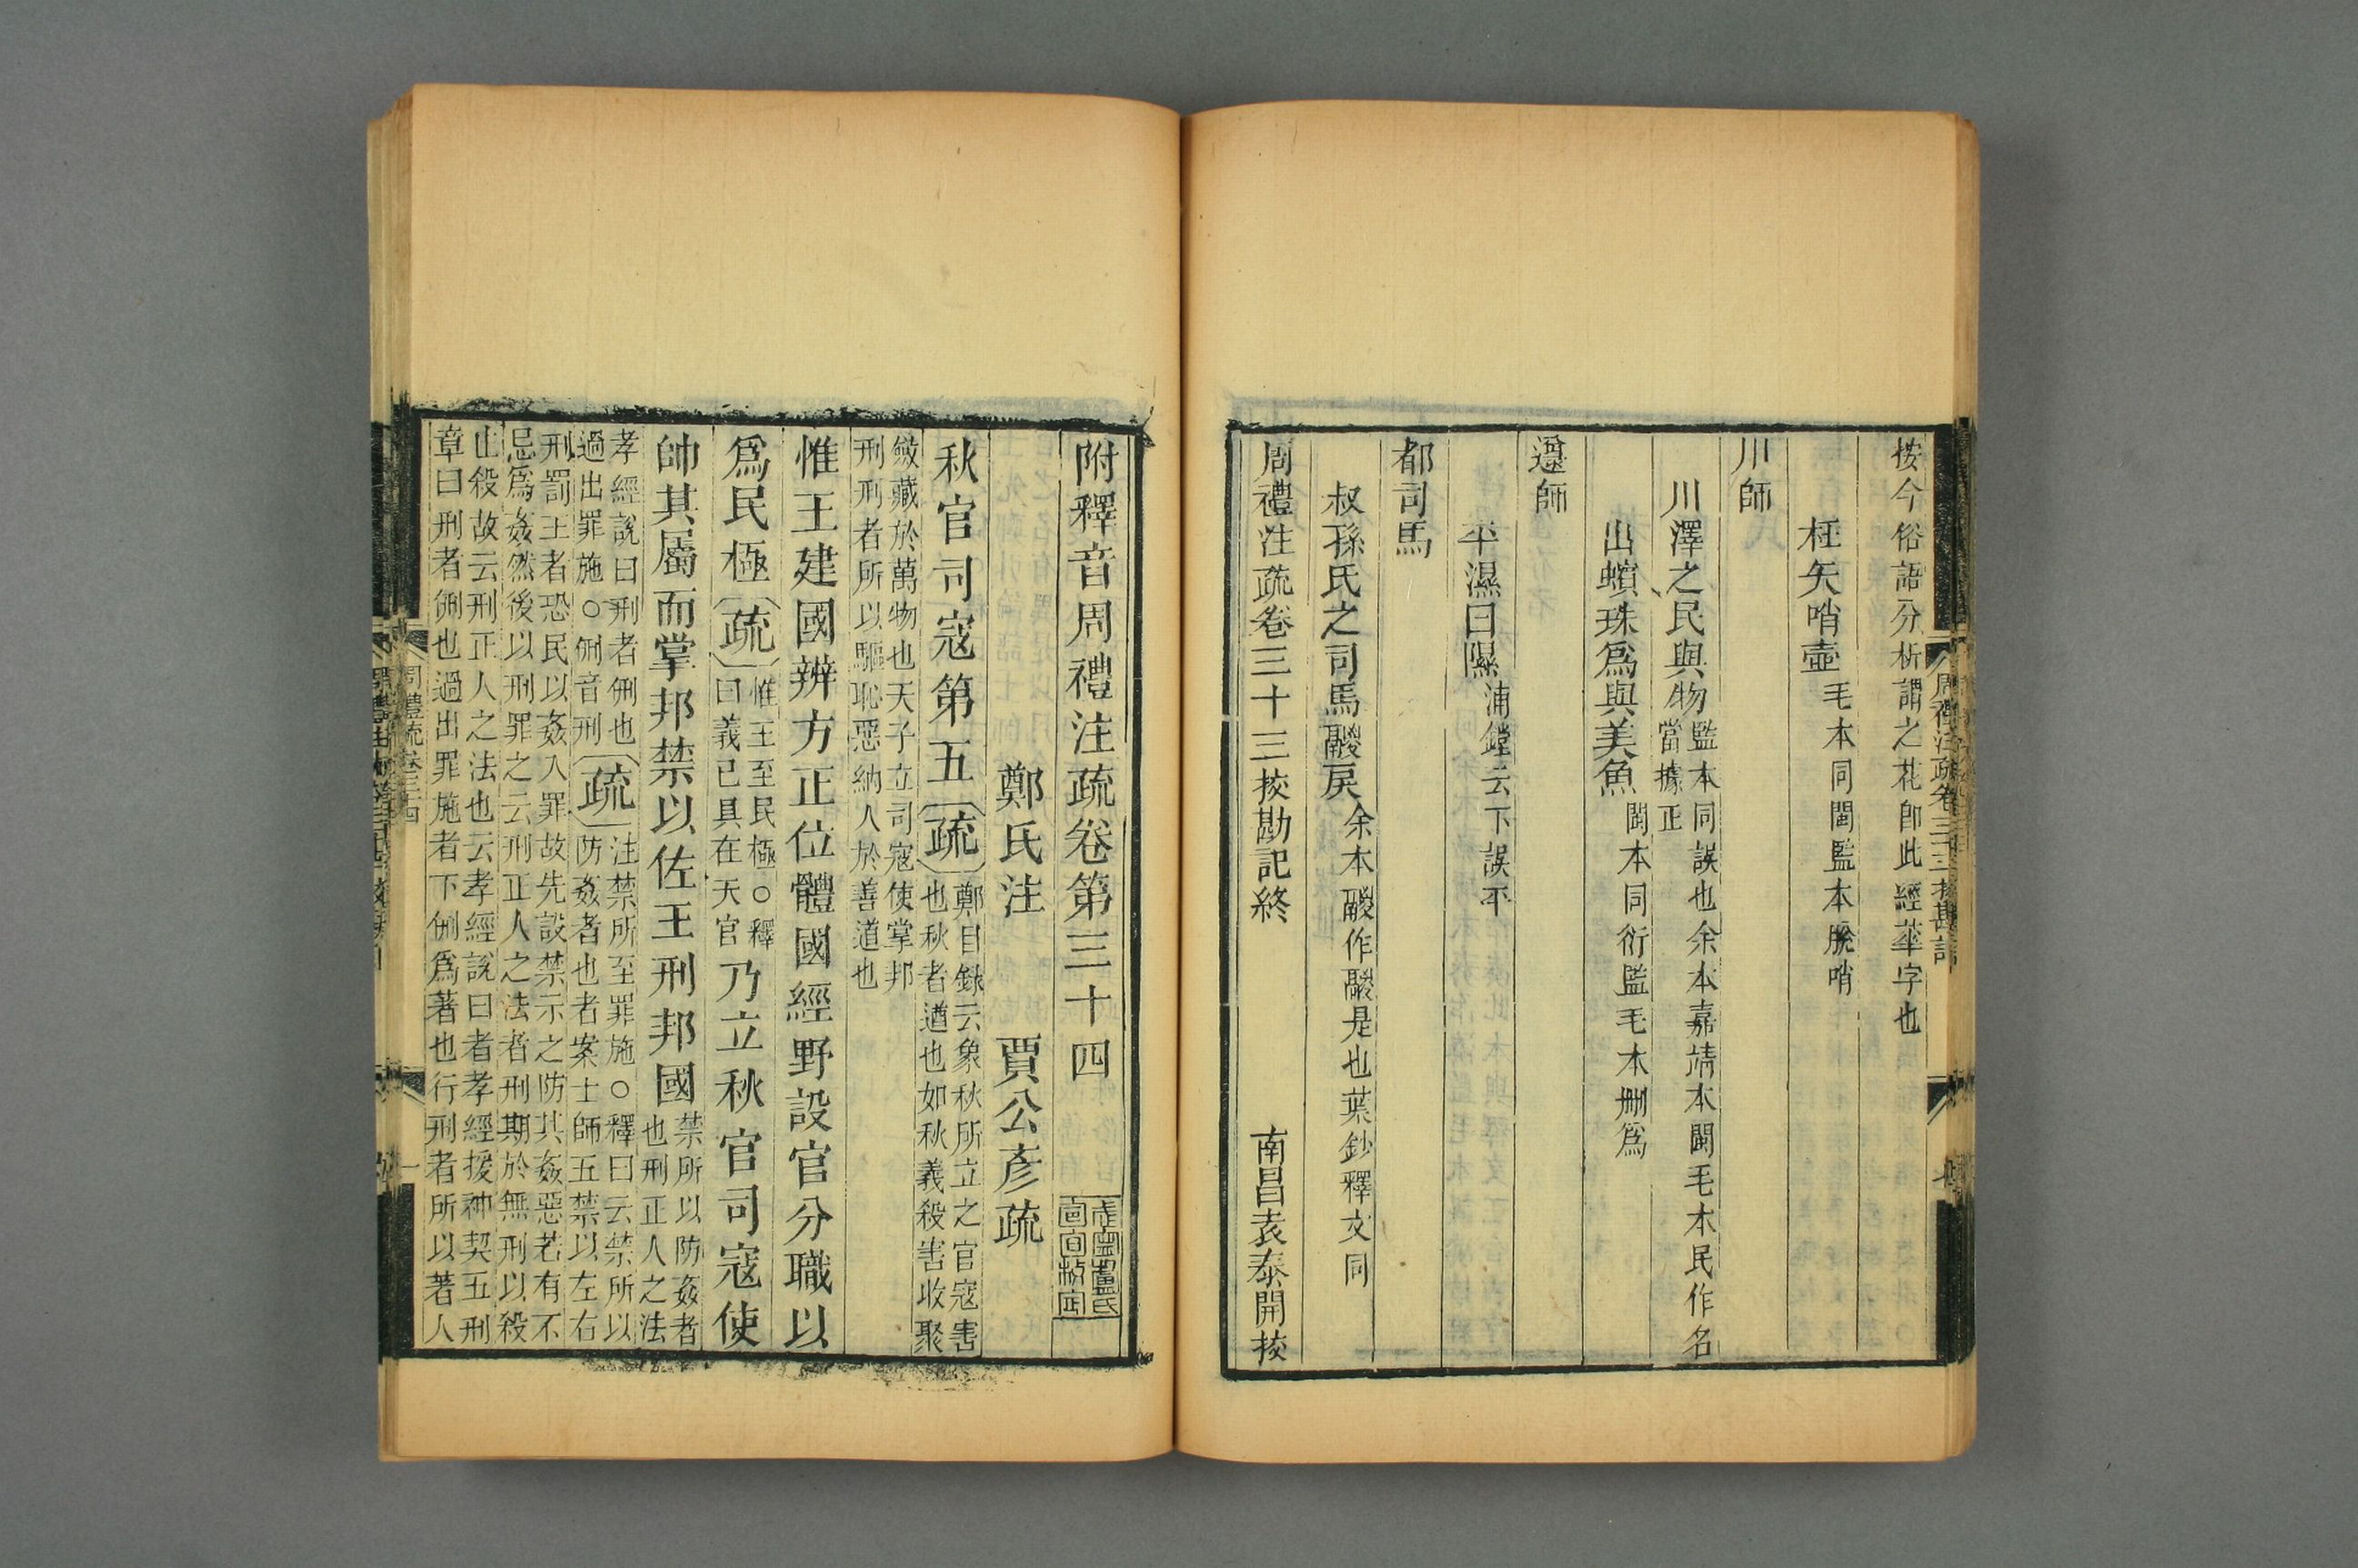 按今俗語分析謂之花卽此經華字也
枉矢哨壺毛本同閩監本脫哨
川師
川澤之民與物監本同誤也余本嘉靖本閩毛本民作名
當據正
出蠙珠爲與美魚閩本同衍監毛本刪爲
邍師
平濕曰隰浦鏜云下誤平
都司馬
叔孫氏之司馬鬷戾余本鬷作鬷是也葉鈔釋文同
周禮注疏卷三十三挍勘記終
南昌袁泰開挍
周禮注疏卷三十三挍勘記
附釋音周禮注疏卷第三十四
鄭氏注
賈公彥疏
秋官司寇第五疏鄭目錄云象秋所立之官寇害
也秋者遒也如秋義殺害收聚
斂藏於萬物也天子立司寇使掌邦
刑刑者所以驅恥惡納人於善道也
惟王建國辨方正位體國經野設官分職以
爲民極疏惟王至民極○釋
曰義已具在天官乃立秋官司寇使
帥其屬而掌邦禁以佐王刑邦國禁所以防姦者
也刑正人之法
孝經說曰刑者侀也
過出罪施○侀音刑疏注禁所至罪施○釋曰云禁所以
防姦者也者案士師五禁以左右
刑罰王者恐民以姦入罪故先設禁示之防其姦惡若有不
忌爲姦然後以刑罪之云刑正人之法者刑期於無刑以殺
止殺故云刑正人之法也云孝經說曰者孝經援神契五刑
章曰刑者侀也過出罪施者下侀爲著也行刑者所以著人
周禮疏卷三十四
一